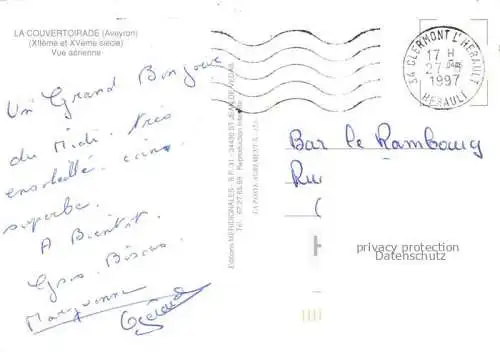 LA COUVERTOIRADE (Aveyron)
(XIIème et XVème siècle)
Vue aérienne
Un Grand Bonjour
du Midi. très
ensoleillé.
superbe.
A Bientôt.
Gros. Bisous.
Maryvonne
Gérard
Editions MERIDIONALES - B.P. 31 - 34490 ST JEAN DE VEDAS
Reproduction interdite
34 CLERMONT L'HERAULT
17 H
27
1997
HERAULT
Bar le Rambourg
Ru
(
privacy protection
Datenschutz